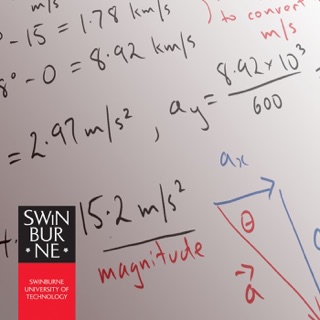 m/s
° - 15 = 1.78 km/s
) to convert
m/s
8° - 0 = 8.92 km/s
= 2.97 m/s² , ay = 8.92 x 10³
600
ax
15.2 m/s²
magnitude
θ
a
SWiN
BUR
* NE *
SWINBURNE
UNIVERSITY OF
TECHNOLOGY